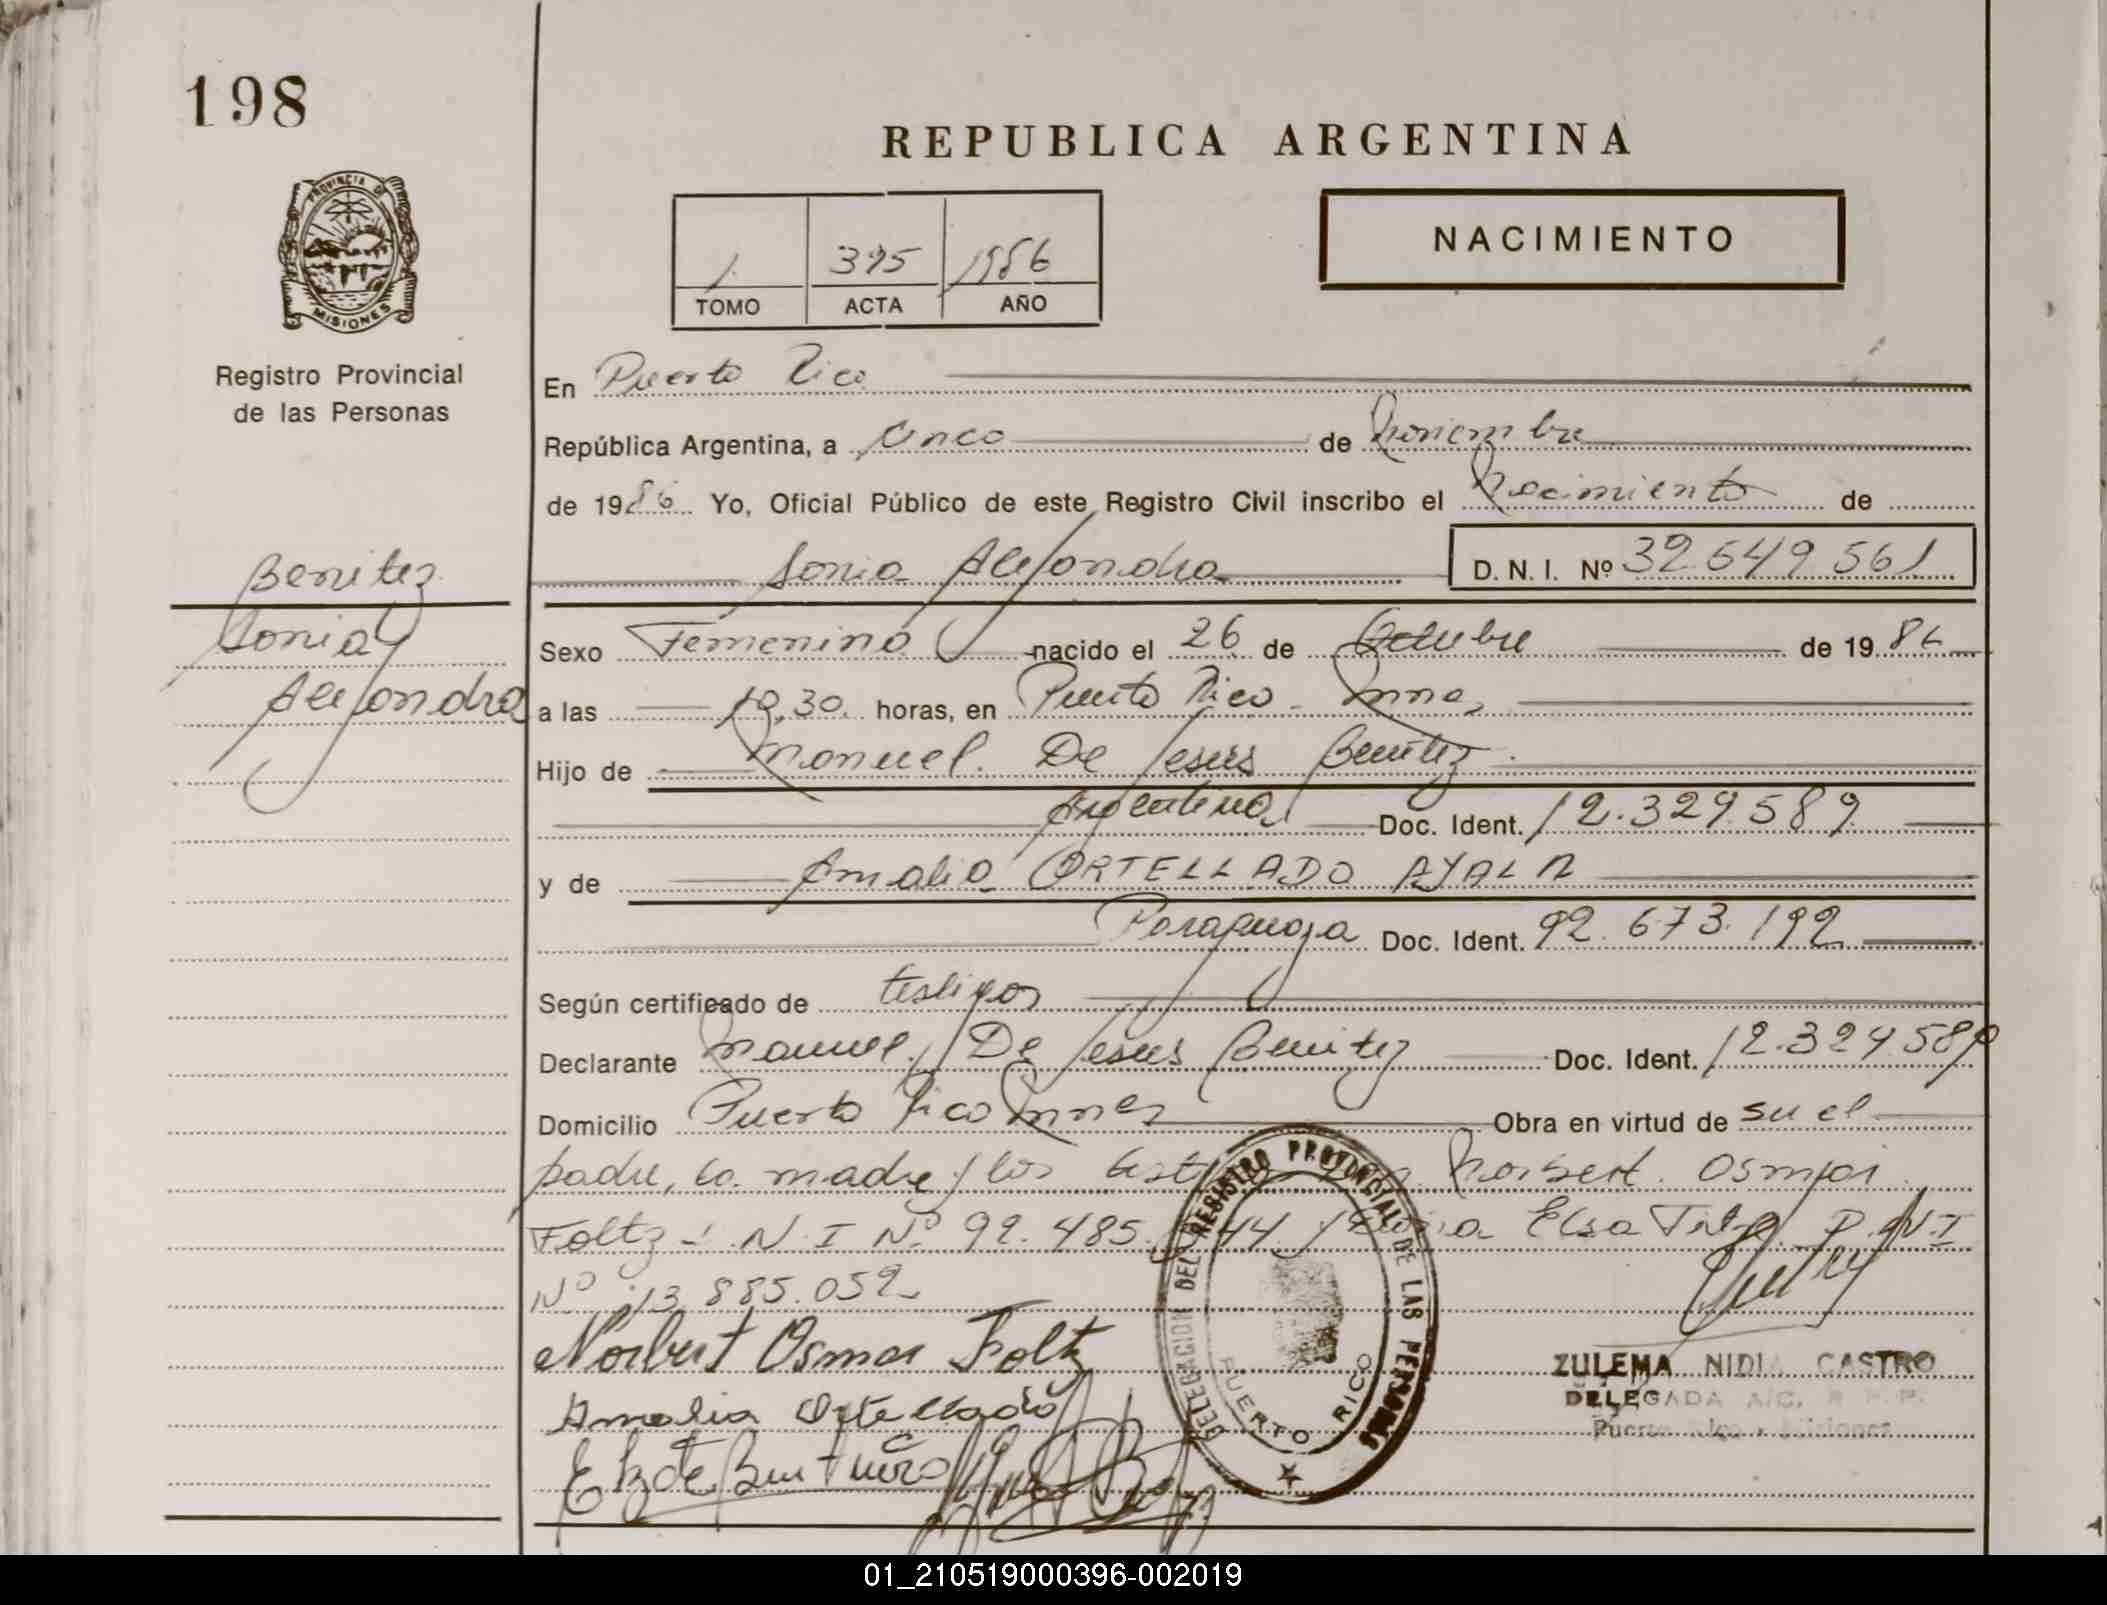 198
REPUBLICA ARGENTINA
PROVINCIA DE
MISIONES
Registro Provincial
de las Personas
1 395 1986
TOMO ACTA AÑO
NACIMIENTO
En Puerto Rico
República Argentina, a Cinco de Noviembre
de 1986 Yo, Oficial Público de este Registro Civil inscribo el Nacimiento de
Sonia Alejandra D. N. I. Nº 32.649.561
Benitez
Sonia
Alejandra
Sexo Femenino nacido el 26 de Octubre de 1986
a las 19,30 horas, en Puerto Rico - Mnes,
Hijo de Manuel De Jesus Benitez
Argentina Doc. Ident. 12.329.589
y de Amalia ORTELLADO AYALA
Paraguaya Doc. Ident. 92.673.192
Según certificado de testigos
Declarante Manuel De Jesus Benitez Doc. Ident. 12.329.589
Domicilio Puerto Rico Mnes Obra en virtud de su el
padre, la madre y los Norbert Osmar
Foltz N I Nº 92.485. Elsa D.N.I
Nº 13.885.052
Norbert Osmar Foltz
Amalia Ortellado
DELEGACION DEL REGISTRO PROVINCIAL DE LAS PERSONAS
PUERTO RICO
ZULEMA NIDIA CASTRO
DELEGADA A/C. R. P. P.
Puerto Rico - Misiones
01_210519000396-002019